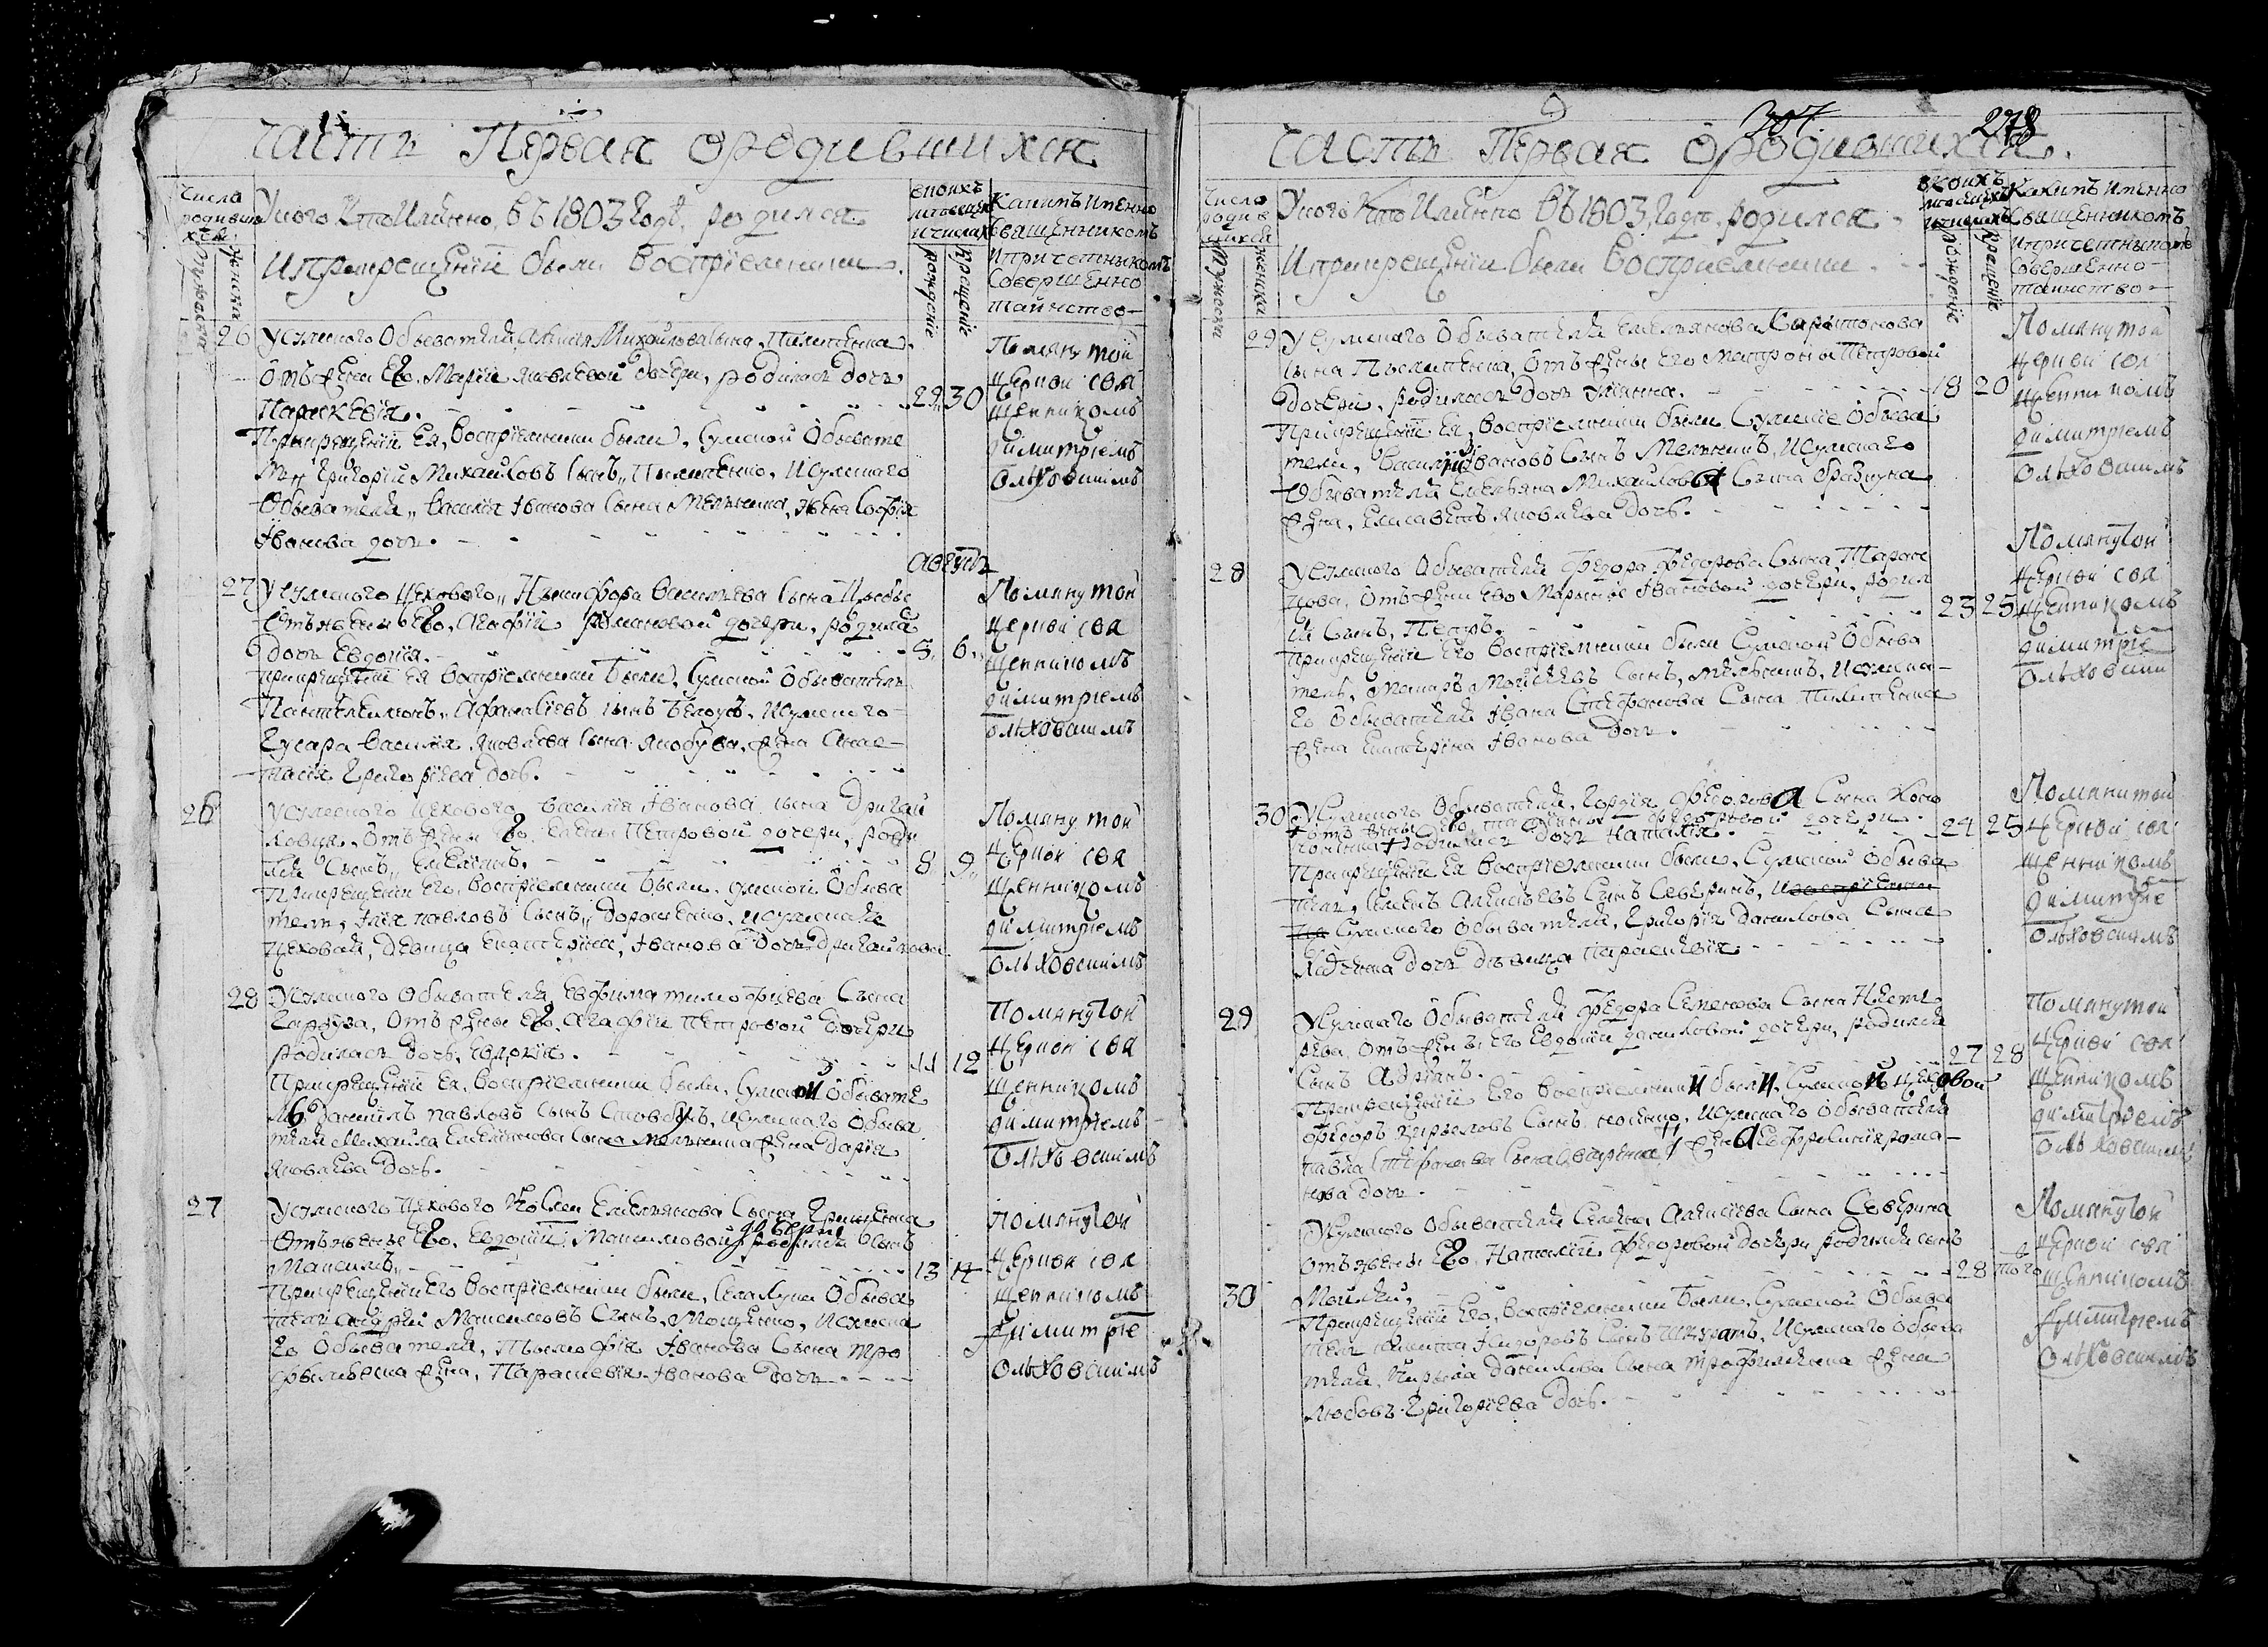 Часть Первая ородившихся
Число родивших ся.
Мужеска
Женска
У кого Кто Имянно, въ 1803 Годѣ, родился
И прикрещении были Восприемники.
в коихъ месяцехъ и числахъ
рождение
крещение
Какимъ Имянно
Священникомъ
И причетникомъ
Совершенно
таинство
26 У Сумского Обывателя, Михайлова сына, Пилипенка
отъ жены Его, Марии Яковлевой дочери, родилась дочь
Параскевия. 29 30
При крещении Ея, Восприемники были, Сумской Обывате
ль Григорий Михайловъ сынъ, Пилипенко, И Сумского
Обывателя, Василия Иванова сына Мельника, жена София
Иванова дочь.
Помянутой
Церкви свя
щенникомъ
Димитриемъ
Ольховскимъ
Августъ
27 У Сумского Цехового, Никифора Васильева сына
Отъ жены Его, Агафии Романовой дочери, родила
дочь Евдокия. 5 6
При крещении Ея Восприемники Были, Сумской Обыватель
Пантелеимонъ, Афанасиевъ сынъ Белоусъ, И Сумского
Гусара Василия Яковлева сына жена Анас
тасия Григориева дочь.
Помянутой
Церкви свя
щенникомъ
Димитриемъ
Ольховскимъ
26 У Сумского Цехового Василия Иванова сына Дригай
ловця, Отъ жены Его Елены Петровой дочери, роди
лся Сынъ, Емелианъ. 8 9
При крещении Его, Восприемники Были, Сумской Обыва
тель, Илия Павловъ Сынъ, Дорошенко, И Сумская
Цеховая, Девица Екатерина, Иванова Дочь Дригайлова
Помянутой
Церкви свя
щенникомъ
Димитриемъ
Ольховскимъ
28 У Сумского Обывателя, Евфима Тимофиева Сына
Гарбуза, Отъ жены Его, Агафии Петровой дочери
родилась дочь, Евдокия. 11 12
При крещении Ея, Восприемники были, Сумской Обывате
ль Даниилъ Павловъ Сынъ И Сумского Обыва
теля Михаила Емелянова Сына Мельника жена Дария
Яковлева Дочь.
Помянутой
Церкви свя
щенникомъ
Димитриемъ
Ольховскимъ
27 У Сумского Цехового Емельянова Сына Гриценка
Отъ жены Его, Евдокии Максимовой дочери Сынъ
Максимъ. 13 14
При крещении Его Восприемники были, Обыва
тель Андрей Максимовъ Сынъ, Моценко, И Сумска
го Обывателя, Тимофия Иванова Сына Тро
фименка жена, Параскевия Иванова Дочь.
Помянутой
Церкви свя
щенникомъ
Димитрие
Ольховскимъ
307 278
Часть Первая ородившихся.
Число родив шихся
Мужеска
женска
У кого Кто Имянно въ 1803 Годѣ родился
И прикрещении были Восприемники.
в коихъ месяцехъ и числахъ
рождение
крещение
Какимъ Имянно
Священникомъ
И причетникомъ
Совершенно
таинство
29 У Сумского Обывателя Емельянова Харитонова
сына Пилипенка, Отъ жены Его Матроны Петровой
дочери, родилась дочь 18 20
При крещении Ея, Восприемники были, Сумские Обыва
тели, Василий Ивановъ Сынъ Мельникъ, И Сумского
Обывателя Емельяна Михайлова Сына
жена, Елисаветъ Яковлева дочь.
Помянутой
Церкви свя
щенникомъ
Димитриемъ
Ольховскимъ
28 У Сумского Обывателя Федора Федорова Сына Таран
Отъ жены Его Марины Ивановой дочери, родил
ся Сынъ, Петръ. 23 25
При крещении Его Восприемники были Сумской Обыва
тель, Макаръ Моисеевъ Сынъ, И Сумска
го Обывателя Ивана Стефанова Сына Пилипенка
жена Екатерина Иванова Дочь.
Помянутой
Церкви свя
щенникомъ
Димитрие
Ольховским
30 У Сумского Обывателя, Гордия Федорова Сына
Отъ жены Его Федоровой дочери
родилась дочь Наталия. 24 25
При крещении Ея Восприемники были, Сумской Обыва
тель, Семенъ Алексеевъ Сынъ Северинъ,
Сумского Обывателя, Григория Данилова Сына
дочь девица Параскевия
Помянутой
Церкви свя
щенникомъ
Димитрие
Ольховскимъ
29 У Сумского Обывателя Федора Семенова Сына
Отъ жены Его Евдокии Даниловой дочери, родился
Сынъ Адрианъ. 27 28
При крещении Его Восприемники были, Сумской Цеховой
Федоръ Кириловъ Сынъ И Сумского Обывателя
Павла Стефанова Сына жена Евфросиния Рома
нова дочь.
Помянутой
Церкви свя
щенникомъ
Димитриемъ
Ольховскимъ
30 У Сумского Обывателя Семена Алексиева Сына Северина
Отъ жены Его, Наталии Федоровой дочери родился сынъ
Моисей. 28 того
При крещении Его, Восприемники были, Сумской Обыва
тель Никита Сынъ И Сумского Обыва
теля, Кирила Данилова Сына Трофименка жена
Любовь Григориева Дочь.
Помянутой
Церкви свя
щенникомъ
Димитриемъ
Ольховскимъ